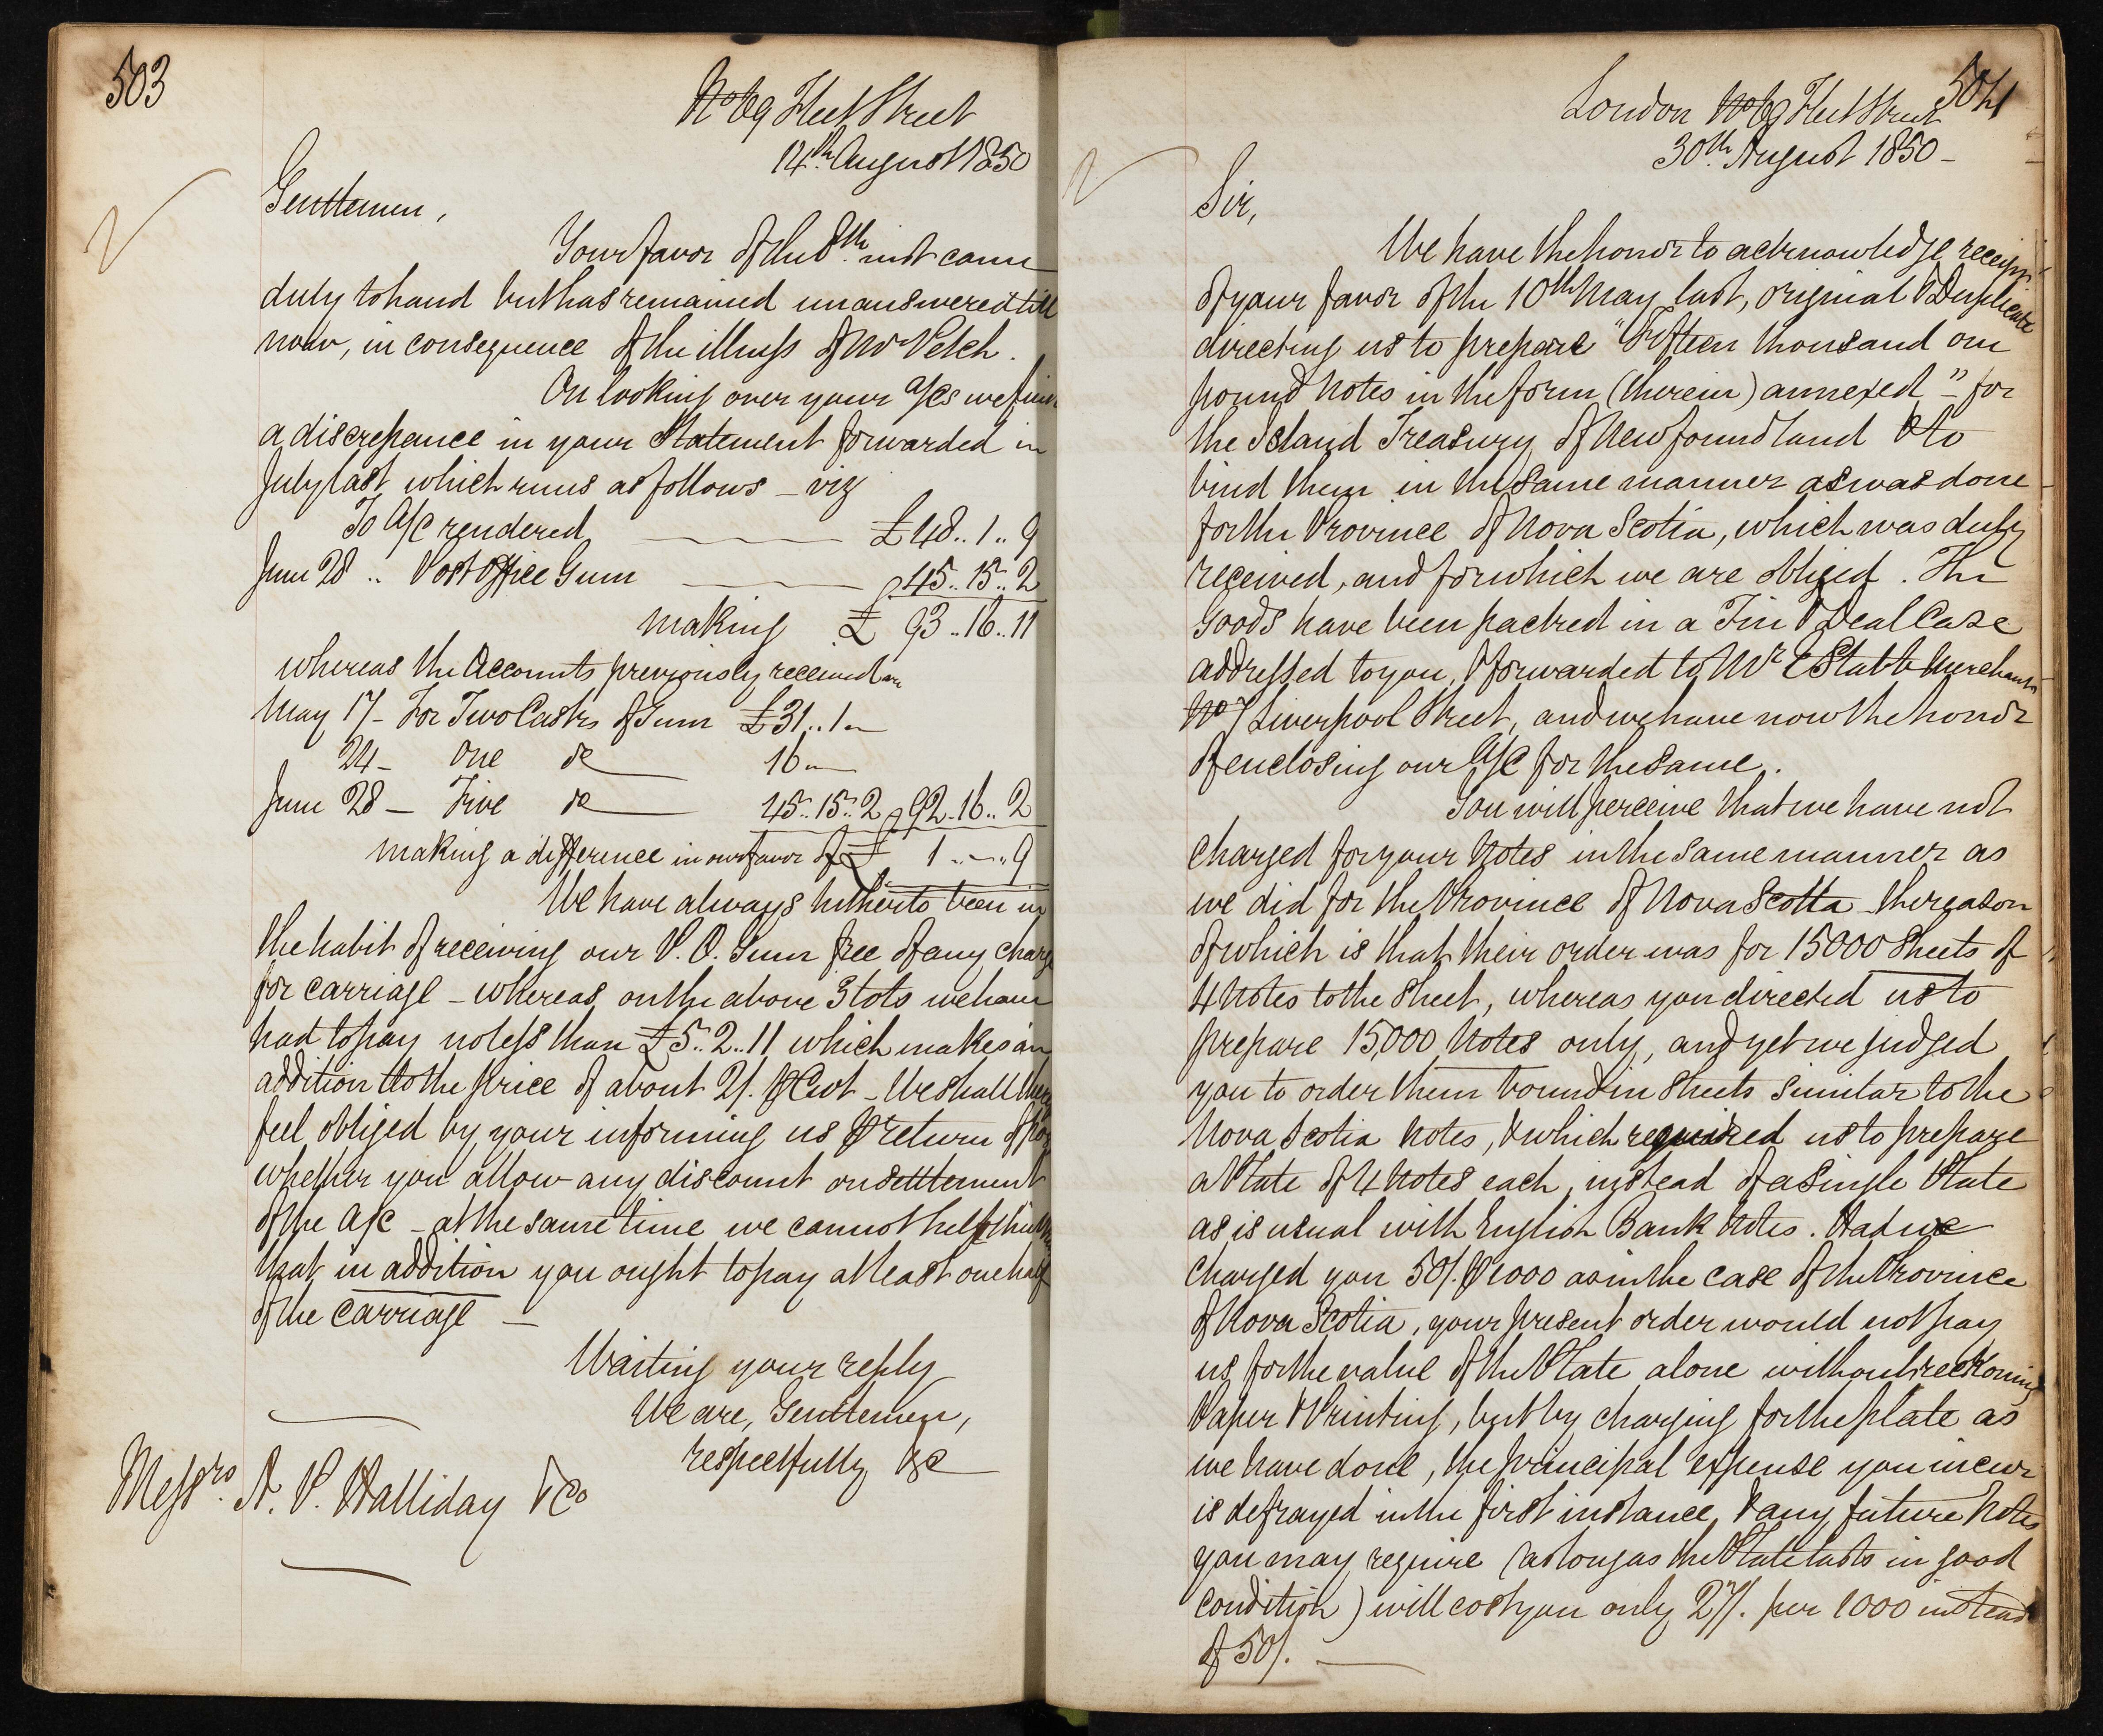 503
No 69 Fleet Street
14th August 1850
Gentlemen,
Your favor of the 8th inst came
duly to hand but has remained unanswered till
now, in consequence of the illness of Mr Petch.
On looking over your a/cs we find
a discrepance in your Statement forwarded in
July last which runs as follows – viz
To A/C rendered £48..1..9
June 28 .. Post Office Gum 45..15..2
making £ 93..16..11
whereas the Accounts previously received are
May 17 – For Two Casks of Gum £31..1 –
24 – One do 16 –
June 28 – Five do 45..15..2 92..16..2
making a difference in our favor of £ 1..–..9
We have always hitherto been in
the habit of receiving our P. O. Gum free of any charge
for carriage – whereas on the above 3 lots we have
had to pay no less than £5..2..11 which makes an
addition to the price of about 2/. ⅌ Cwt – We shall
feel obliged by your informing us ⅌ return of post
whether you allow any discount on settlement
of the A/C – at the same time we cannot help thinking
that in addition you ought to pay at least one half
of the carriage –
Waiting your reply
We are, Gentlemen,
respectfully &c
Messrs A. P. Halliday & Co
504
London No 69 Fleet Street
30th August 1850 –
Sir,
We have the honor to acknowledge receipt
of your favor of the 10th May last, original & Duplicate
directing us to prepare "Fifteen thousand one
pound Notes in the form (therein) annexed" – for
the Island Treasury of Newfoundland & to
bind them in the same manner as was done
for the Province of Nova Scotia, which was duly
received, and for which we are obliged. The
Goods have been packed in a Tin & Deal Case
addressed to you, & forwarded to Mr E Stabb Merchant
No 7 Liverpool Street, and we have now the honor
of enclosing our A/C for the same.
You will perceive that we have not
charged for your Notes in the same manner as
we did for the Province of Nova Scotia – the reason
of which is that their order was for 15000 Sheets of
4 Notes to the Sheet, whereas you directed us to
prepare 15,000 Notes only, and yet we judged
you to order them bound in sheets similar to the
Nova Scotia Notes, & which required us to prepare
a Plate of 4 Notes each, instead of a single Plate
as is usual with English Bank Notes. Had we
charged you 50/. ⅌ 1000 as in the case of the Province
of Nova Scotia, your present order would not pay
us for the value of the Plate alone without reckoning
Paper & Printing, but by charging for the plate as
we have done, the principal expense you incur
is defrayed in the first instance, & any future Notes
you may require (as long as the Plate lasts in good
condition) will cost you only 27/. per 1000 instead
of 50/. –